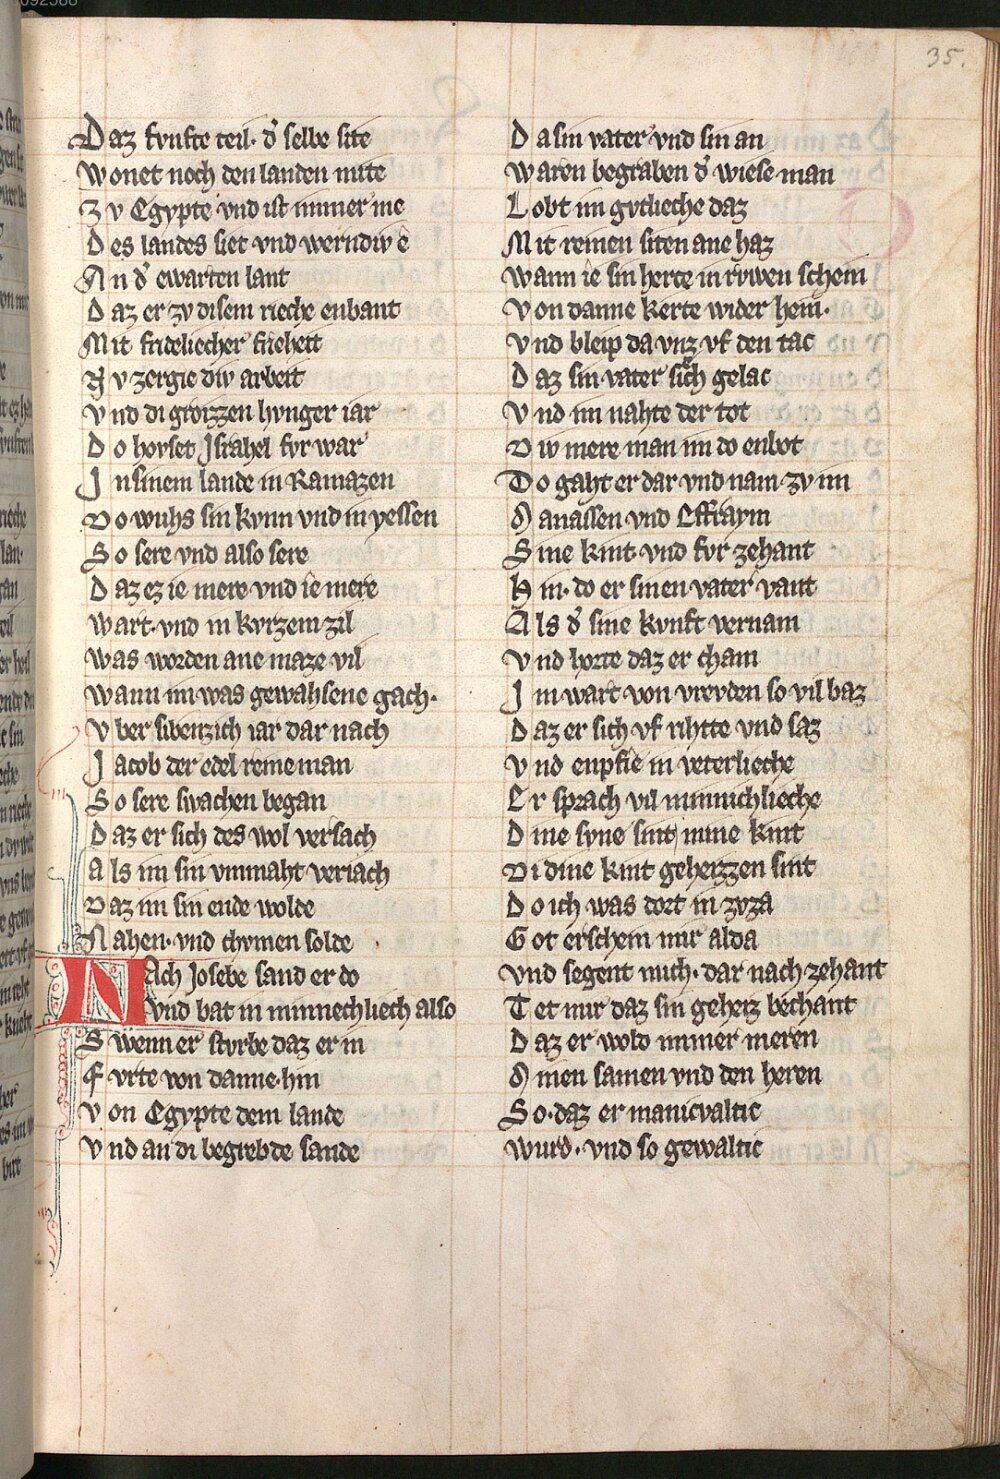 35.
Daz fvnfte teil. d̉ selbe site
Wonet noch den landen mite
Zv Egypte vnd ist immer me
Des landes siet vnd werndiv e
An d̉ ewarten lant
Daz er zv disem rieche enbant
Mit frideliecher frieheit
Nv zergie div arbeit
Vnd di grozzen hvnger iar
Do hovset Israhel fvr war
In sinem lande in Ramazen
Do wuhs sin kvnn vnd in yessen
So sere vnd also sere
Daz ez ie mere vnd ie mere
Wart. vnd in kvrzem zil
Was worden ane maze vil
Wann im was gewahsene gach.
Vber sibenzich iar dar nach
Jacob der edel reine man
So sere swachen began
Daz er sich des wol versach
Als im sin vnmaht veriach
Daz im sin ende wolde
Nahen. vnd chvmen solde
Nach Josebe sand er do
Vnd bat in minnechliech also
Swenn er stvrbe daz er in
Fvrte von danne hin
Von Egypte dem lande
Vnd an di begrebde sande
Da sin vater vnd sin an
Waren begraben d̉ wiese man
Lobt im gvtlieche daz
Mit reinen siten ane haz
Wann ie sin herce in rvwen schein
Von danne kerte wider hein.
Vnd bleip da vnz vf den tac
Daz sin vater sich gelac
Vnd im nahte der tot
Div mere man im do enbot
Do gaht er dar vnd nam zv im
Manassen vnd Effraym
Sine kint vnd fvr zehant
Hin. do er sinen vater vant
Als d̉ sine kvnft vernam
Vnd horte daz er cham
Im wart von vrevden so vil baz
Daz er sich vf rihtte vnd saz
Vnd enpfie in veterlieche
Er sprach vil minnichlieche
Dine syne sint mine kint
Di dine kint geheizzen sint
Do ich was dort in zvza
Got erschein mir alda
Vnd segent mich. dar nach zehant
Tet mir daz sin geheiz bechant
Daz er wold immer meren
Minen samen vnd den heren
So. daz er manicvaltic
Wurd. vnd so gewaltic